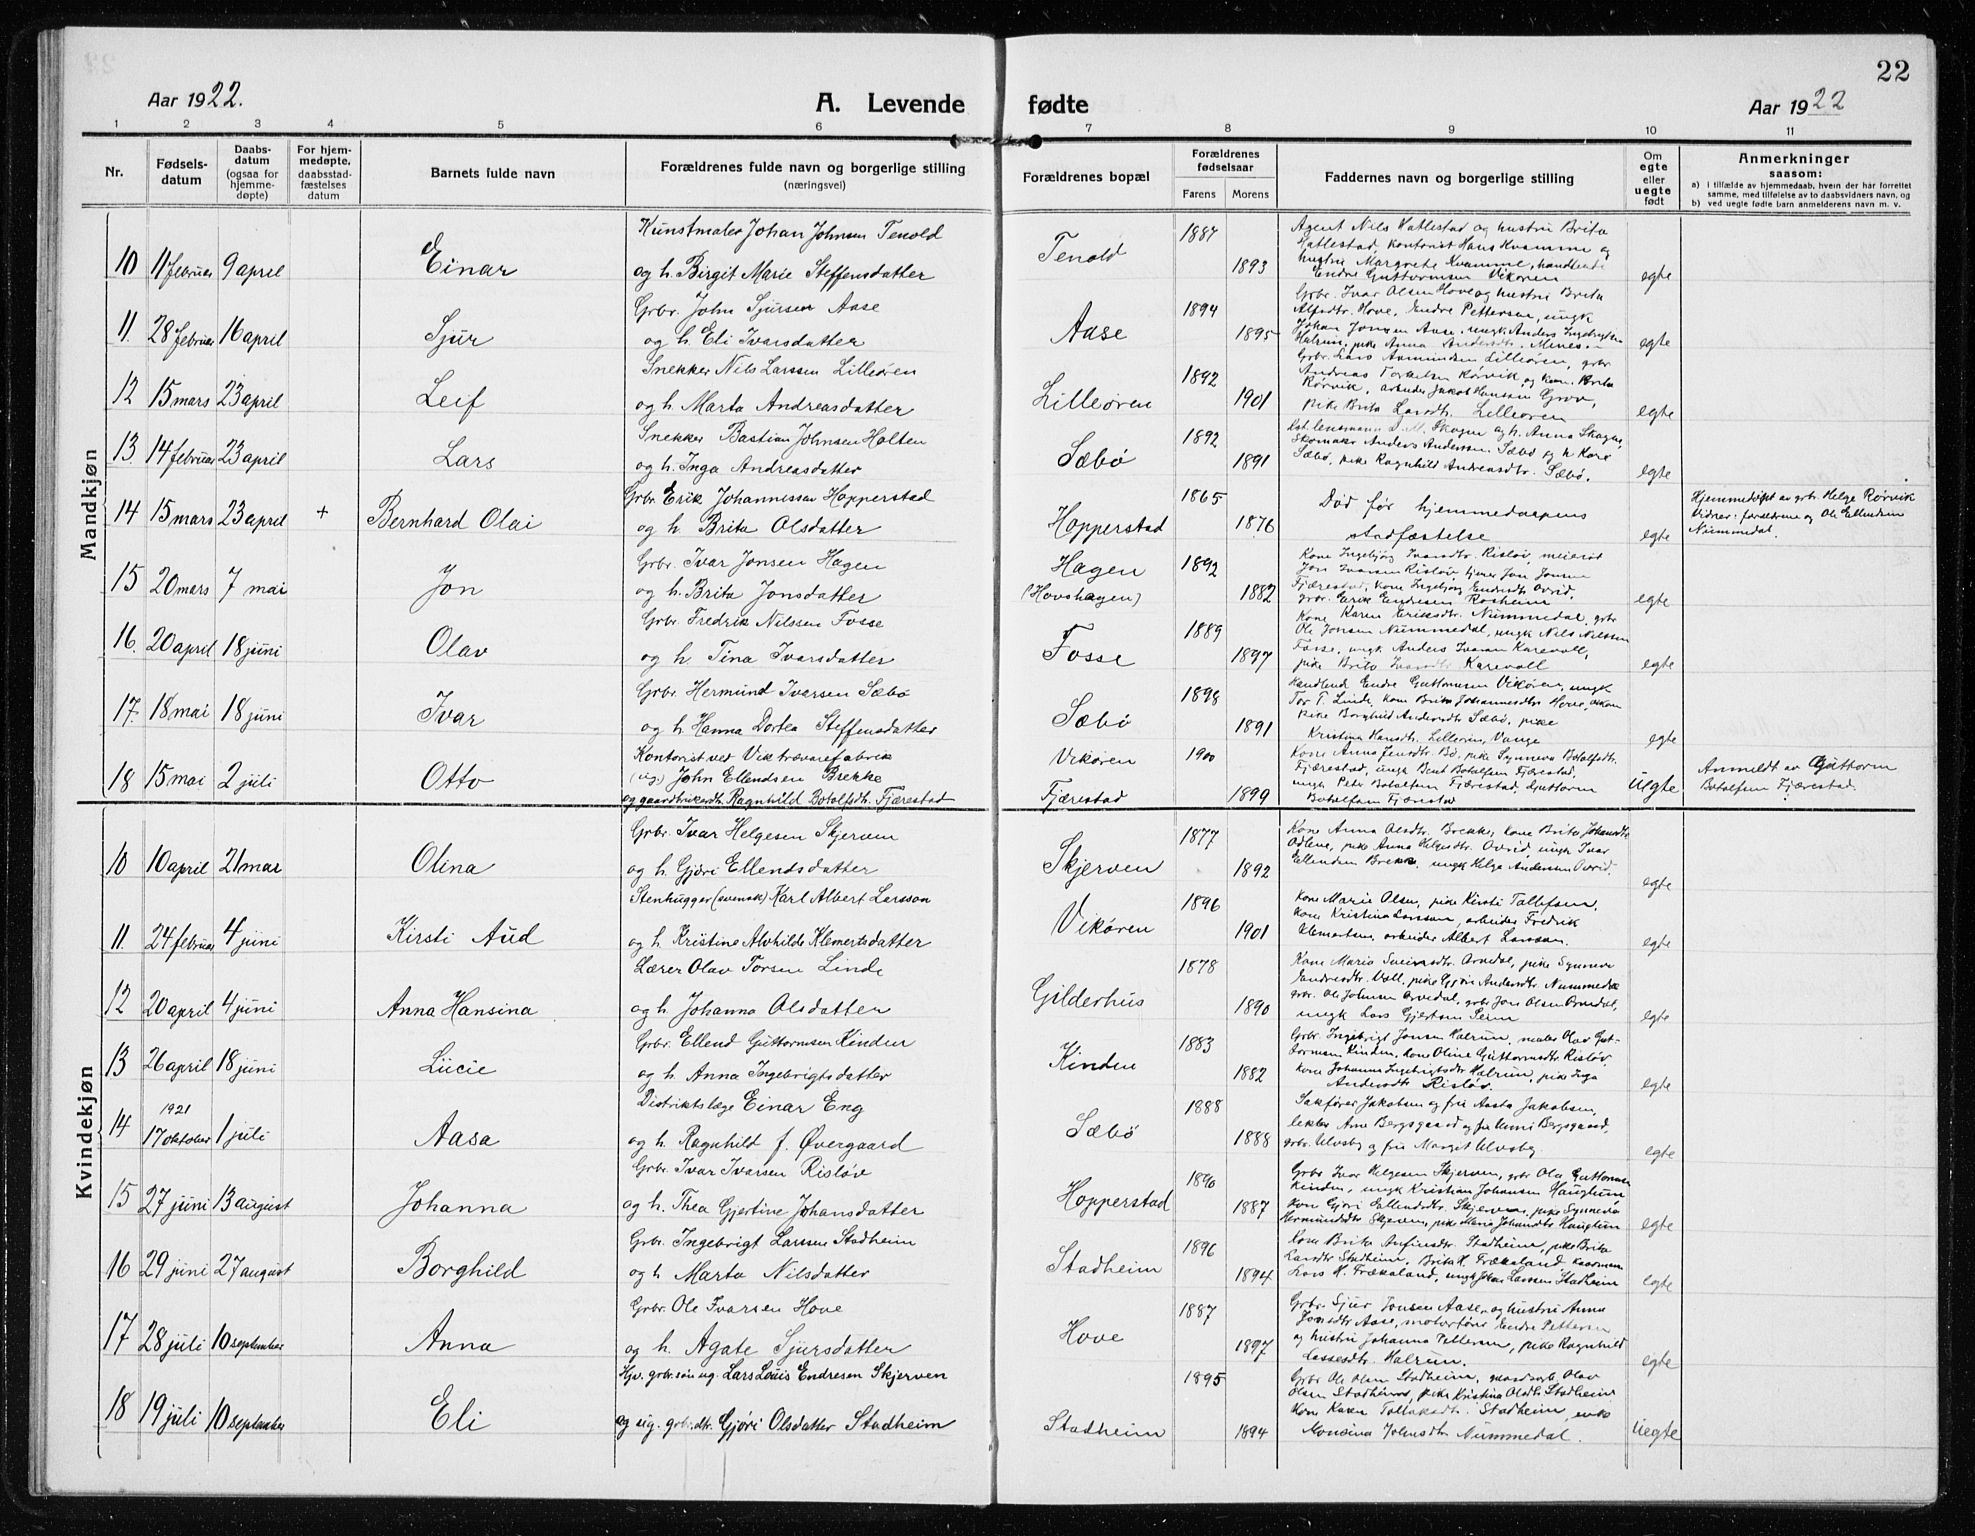 22
Aar 1922.
A. Levende fødte
Aar 1922
1 2 3 4 5 6 7 8 9 10 11
Nr.
Fødselsdatum
Daabsdatum (ogsaa for hjemmedøpte)
For hjemmedøpte, daabsstadfæstelses datum
Barnets fulde navn
Forældrenes fulde navn og borgerlige stilling
(næringsvei)
Forældrenes bopæl
Forældrenes fødselsaar
Farens Morens
Faddernes navn og borgerlige stilling
Om egte eller uegte født
Anmerkninger
saasom:
a) I tilfælde av hjemmedaab, hvem der har forrettet
samme, med tilføielse av to daabsvidners navn, og
b) ved uegte fødte barn anmelderens navn m. v.
Mandkjøn
Kunstmaler Johan Johnsen Tenold 1887 Agent Nils Hatlestad og hustru Brita
10 11 februar 9 april Einar og h. Birgit Marie Steffensdatter Tenold 1893 Hatlestad, kontorist Hans Kvamme og
hustru Margrete Kvamme, handlende
Endre Guttormsen Vikøren egte
Grbr. John Sjursen Aase 1894 Grbr. Ivar Olsen Hove og hustru Brita
11. 28 februar 16 april Sjur og h. Eli Ivarsdatter Aase 1895 Hove, Endre Pettersen, ungk
Johan Jonsen Aase, ungk Anders Ingebrigtsen
Halrun, pike Anna Andersdtr. egte
Snekker Nils Larssen Lilleøren 1892 Grbr. Lars Aamundsen Lilleøren, grbr
12 15 mars 23 april Leif og h. Marta Andreasdatter Lilleøren 1901 Andreas Torkelsen Rørvik, og kone Brita
Rørvik, arbeider Jakob Hansen Grov,
pike Brita Larsdtr. Lilleøren egte
Snekker Bastian Johnsen Holten 1892 lensmann Skagen og h. Anna Skagen,
13 14 februar 23 april Lars og h. Inga Andreasdatter Sæbø 1891 Skomaker Anders Anderssen Sæbø og h Kari
Sæbø, pike Ragnhild Andreasdtr. Sæbø. egte
Grbr. Erik Johannessen Hopperstad 1865 Død før hjemmedaapens Hjemmedøpt av grbr. Helge Rørvik
14 15 mars 23 april + Bernhard Olai og h. Brita Olsdatter Hopperstad 1876 stadfæstelse egte Vidner: forældrene og Ole Ellendsen
Nummedal.
Grbr. Ivar Jonsen Hagen Hagen 1892 Kone Ingebjørg Ivarsdtr. Risløv, meierist
15 20 mars 7 mai Jon og h. Brita Jonsdatter (Hovshagen) 1882 Jon Ivarsen Risløv, tjener Jon Jonsen
Fjærestad, kone Ingebjørg Endresdtr Ovrid,
grbr. Erik Endresen Rosheim egte
Grbr. Fredrik Nilssen Fosse 1889 Kone Karen Eriksdtr. Nummedal, grbr
16. 20 april 18 juni Olav og h. Tina Ivarsdatter Fosse 1897 Ole Jonsen Nummedal, ungk Nils Nilssen
Fosse, ungk Anders Ivarsen Karevoll,
pike Brita Ivarsdtr Karevoll egte
Grbr. Hermund Ivarsen Sæbø 1898 Handlende Endre Guttormsen Vikøren, ungk
17. 18 mai 18 juni Ivar og h. Hanna Dortea Steffensdatter Sæbø 1891 Tor T. Linde, kone Brita Johannesdtr Hove,
pike Borghild Andersdtr Sæbø, pike
Kristina Hansdtr. Lilleøren, Vange egte
Kontorist ved Vik trævarefabrik Vikøren 1900 Kone Anna Jensdtr. Bø, pike Synneva Botolfsdtr.
18 15 mai 2 juli Otto (ug.) John Ellendsen Brekke Fjærestad, ungk Bend Botolfsen Fjærestad, Uegte Anmeldt av Guttorm
og gaardbrukerdtr. Ragnhild Botolfsdtr. Fjærestad Fjærestad 1899 ungk Peter Botolfsen Fjærestad, Guttorm Botolfsen Fjærestad.
Botolfsen Fjærestad
Kvindekjøn
Grbr. Ivar Helgesen Skjerven 1877 Kone Anna Olsdtr. Brekke, kone Brita Johansdtr
10 10 april 21 mai Olina og h. Gjøri Ellendsdatter Skjerven 1892 pike Anna Helgesdtr. Ovrid, ungk Ivar
Ellendsen Brekke, ungk Helge Andersen Ovrid. egte
Stenhugger (svensk) Karl Albert Larsson 1896 Kone Marie Olsen, pike Kirsti Tollefsen,
11. 24 februar 4 juni Kirsti Aud og h. Kristine Alvhilde Klemertsdatter Vikøren 1901 Kone Kristina Larssen, arbeider Fredrik
Klemertsen, arbeider Albert Larsson. egte
Lærer Olav Torsen Linde 1878 Kone Maria Sveinsdtr. Orvedal, pike Synneva
12 20 april 4 juni Anna Hansina og h. Johanna Olsdatter Gilderhus 1890 Endresdtr. Voll, pike Gjøri Andersdtr. Nummedal
grbr. Ole Johnsen Orvedal, grbr Jon Olsen Orvedal,
ungk Lars Gjertsen egte
Grbr. Ellend Guttormsen Hinden 1883 Grbr. Ingebrigt Jonsen Halrun, maler Olav Guttormsen
13 26 april 18 juni Lucie og h. Anna Ingebrigtsdatter Kinden 1882 Kinden, kone Oline Guttormsdtr Risløv,
Kone Johanna Ingebrigtsdtr Halrun, pike Inga
Andersdtr Risløv. egte
1921 Distriktslæge Einar Eng 1888 Sakfører Jakobsen og fru Aasta Jakobsen,
14 17 oktober 1 juli Aasa og h. Ragnhild f. Øvergaard Sæbø 1888 lektor Arne Bergsgaard og fru Unni Bergsgaard,
grbr. Ulvsby og fru Margit Ulvsby. egte
Grbr. Ivar Ivarsen Risløv 1896 Grbr Ivar Helgesen Skjerven, grbr Ola Guttormsen
15 27 juni 13 august Johanna og h. Thea Gjertine Johansdatter Hopperstad 1887 Kinden, ungk Kristian Johansen Hauglum
Kone Gjøri Ellendsdtr Skjerven, pike Synneva
Hermundsdtr Skjerven, pike Maria Johansdtr Hauglum egte
Grbr. Ingebrigt Larssen Stadheim 1896 Kone Brita Anfinsdtr. Stadheim, pike Brita
16 29 juni 27 august Borghild og h Marta Nilsdatter Stadheim 1894 Larsdtr Stadheim, Brita H. Frækaland,
Lars H. Frækaland, ungk Johan Larssen Stadheim egte
Grbr. Ole Ivarsen Hove 1887 Grbr. Sjur Jonsen Aase, og hustru Anna
17 28 juli 10 september Anna og h. Agate Sjursdatter Hove 1897 Jonsdtr Aase, motorfører Endre Pettersen
og hustru Johanna Pettersen, pike Ragnhild
Lassesdtr. Halrun. egte
Hjv. grbr.søn ug. Lars Louis Endresen Skjerven 1895 Grbr Ole Olsen Stadheim, Olav
18 19 juli 10 september Eli og sig. grbr.dtr. Gjøri Olsdatter Stadheim Stadheim 1894 Olsen Stadheim, pike Kristina Olsdtr Stadheim
Kone Karen Tollaksdtr. Stadheim, enke
Monsina Johnsdtr Nummedal. Uegte